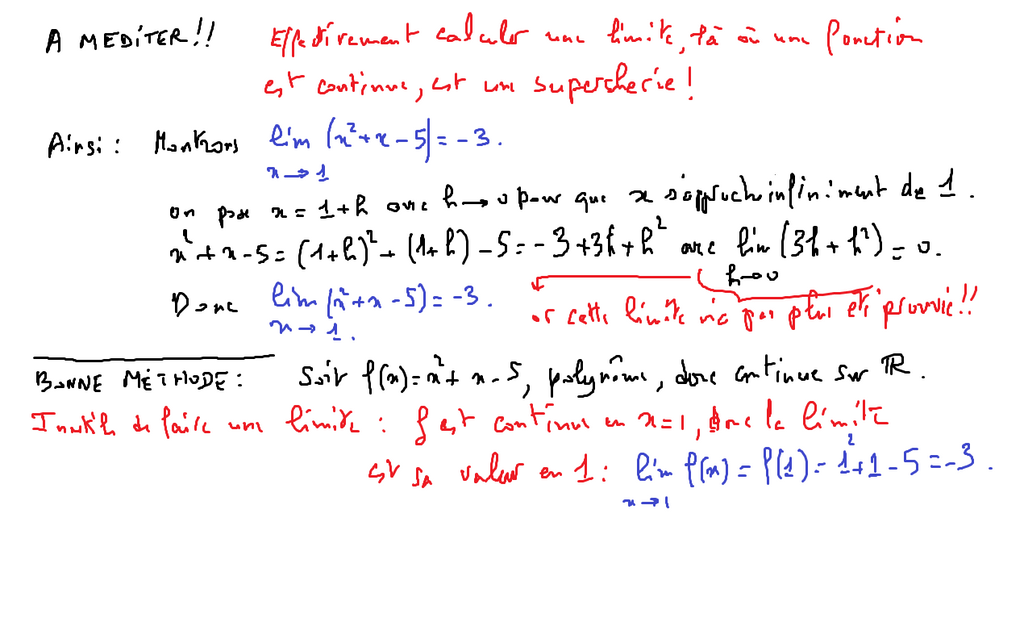 A MEDITER!! Effectivement calculer une limite, là où une fonction
est continue, est une supercherie!
Ainsi: Montrons lim (x²+x-5)=-3.
x→1
on pose x=1+h avec h→0 pour que x s'approche infiniment de 1.
x²+x-5=(1+h)²+(1+h)-5=-3+3h+h² avec lim(3h+h²)=0.
h→0
Donc lim(x²+x-5)=-3. or cette limite n'a pas plus été prouvée!!
x→1.
BONNE MÉTHODE: Soit f(x)=x²+x-5, polynôme, donc continue sur ℝ.
Inutile de faire une limite: f est continue en x=1, donc la limite
est sa valeur en 1: lim f(x)=f(1)=1²+1-5=-3.
x→1